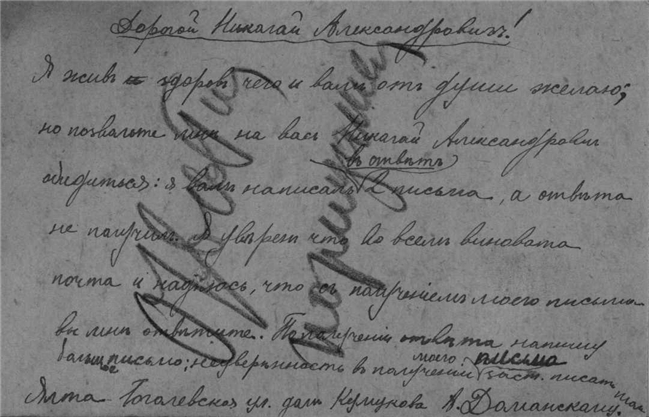 Дорогой Никалай Александровичъ!
Я живъ и здоровъ чего и вамъ отъ души желаю;
но позвольте мнѣ на васъ Никалай Александровичъ
въ отвѣтъ
обидиться: я вамъ написалъ 2 письма, а отвѣта
не палучилъ. Я увѣренъ что во всемъ виновата
почта и надѣюсь, что съ палучениемъ моего письма
вы мнѣ отвѣтите. По палучении отвѣта напишу
моего письма
большое письмо; неувѣренность въ палучении заст. писать
Ялта Гогалевская ул. домъ А. Доманскаму.